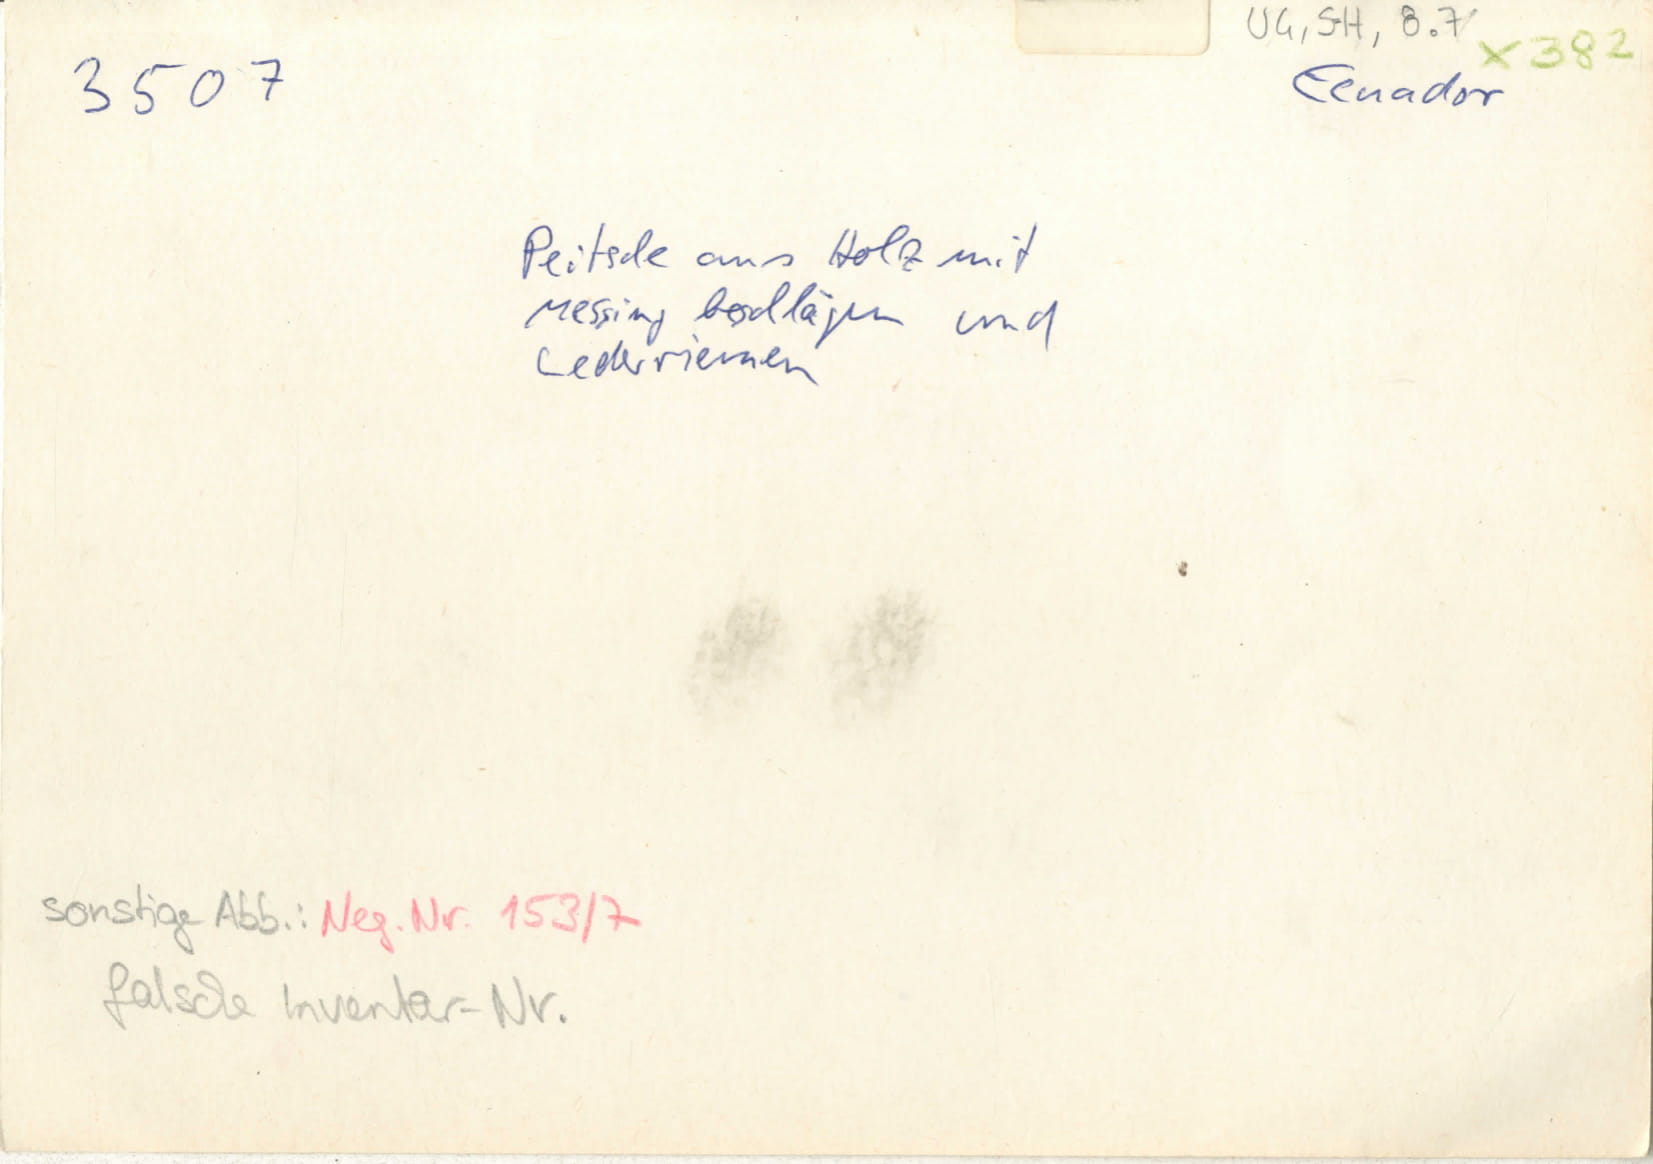 3507
UG, SH, 8.7
X382
Ecuador
Peitsche aus Holz mit
Messing beschlägen und
Lederriemen
sonstige Abb.: Neg. Nr. 153/7
falsche Inventar-Nr.